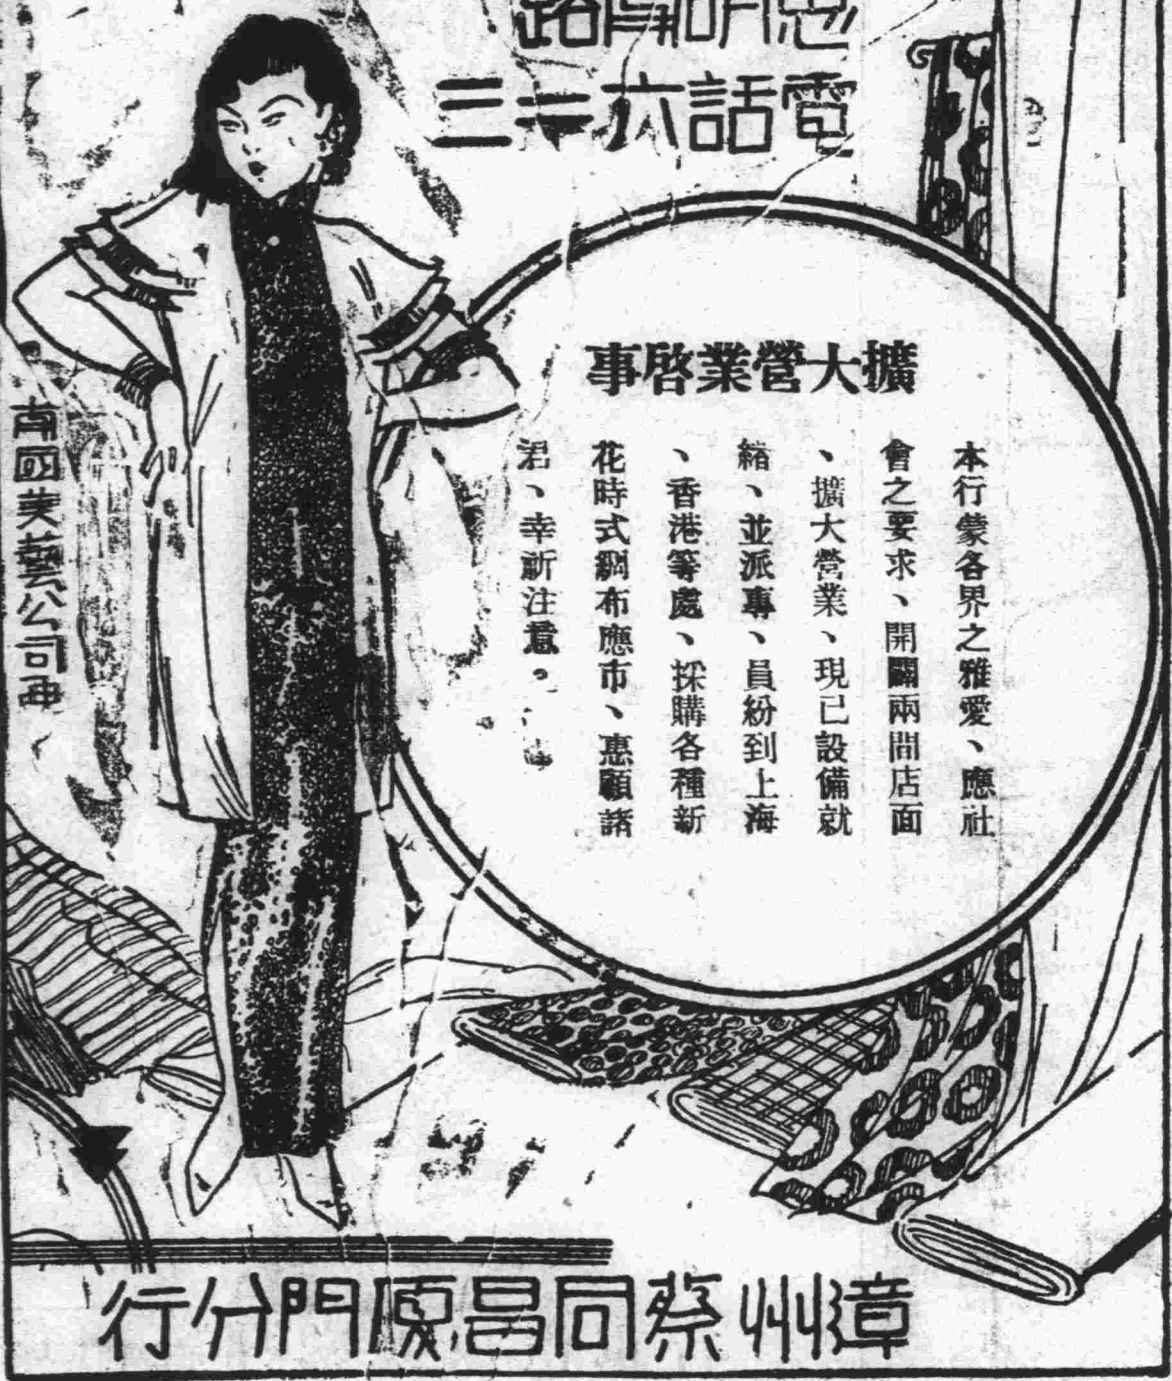 思明南路
電話六三
擴大營業啓事
本行蒙各界之雅愛、應社
會之要求、開闢兩間店面
、擴大營業、現已設備就
緒、並派專、員紛到上海
、香港等處、採購各種新
花時式綢布應市、惠顧諸
君、幸祈注意。
南國美藝公司画
漳州蔡同昌厦門分行